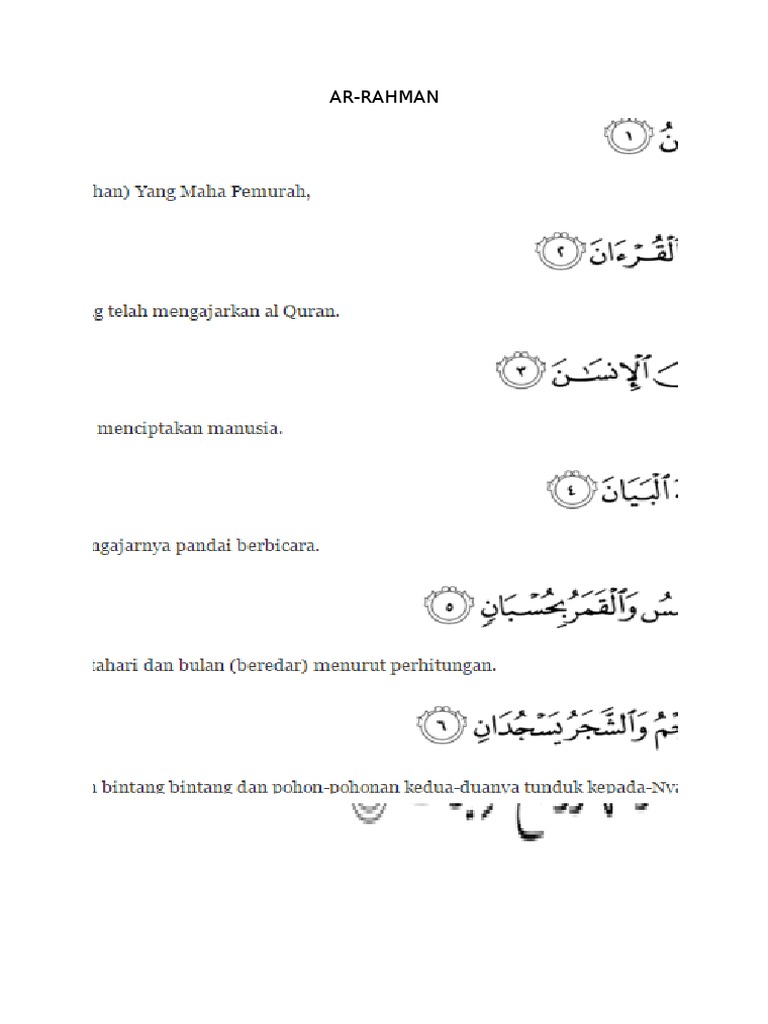 AR-RAHMAN
نُ ١
han) Yang Maha Pemurah,
ٱلْقُرْءَانَ ٢
g telah mengajarkan al Quran.
ٱلْإِنسَـٰنَ ٣
menciptakan manusia.
ٱلْبَيَانَ ٤
ngajarnya pandai berbicara.
سُ وَٱلْقَمَرُ بِحُسْبَانٍ ٥
tahari dan bulan (beredar) menurut perhitungan.
جْمُ وَٱلشَّجَرُ يَسْجُدَانِ ٦
bintang bintang dan pohon-pohonan kedua-duanya tunduk kepada-Nya